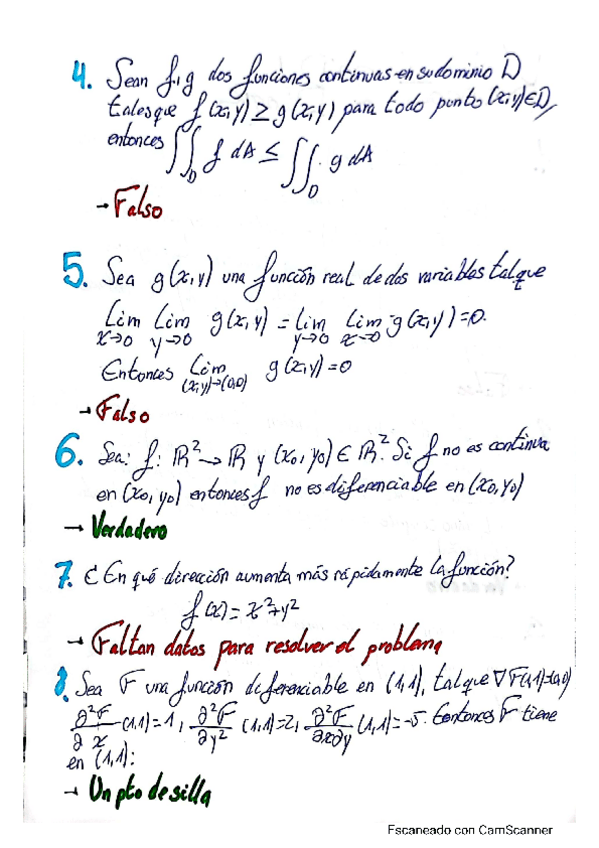 4. Sean f, g dos funciones continuas en su dominio D
tales que f(x,y) ≥ g(x,y) para todo punto (x,y)∈D,
entonces ∬_D f dA ≤ ∬_D g dA
→ Falso
5. Sea g(x,y) una función real de dos variables tal que
Lim x→0 Lim y→0 g(x,y) = Lim y→0 Lim x→0 g(x,y) = 0.
Entonces Lim (x,y)→(0,0) g(x,y) = 0
→ Falso
6. Sea: f: ℝ² → ℝ y (x₀, y₀) ∈ ℝ². Si f no es continua
en (x₀, y₀) entonces f no es diferenciable en (x₀, y₀)
→ Verdadero
7. ¿En qué dirección aumenta más rápidamente la función?
f(x) = x²+y²
→ Faltan datos para resolver el problema
8. Sea F una función diferenciable en (1,1), tal que ∇F(1,1)=(0,0)
∂²F/∂x (1,1)=1, ∂²F/∂y² (1,1)=2, ∂²F/∂x∂y (1,1)=-5. Entonces F tiene
en (1,1):
→ Un pto de silla
Escaneado con CamScanner